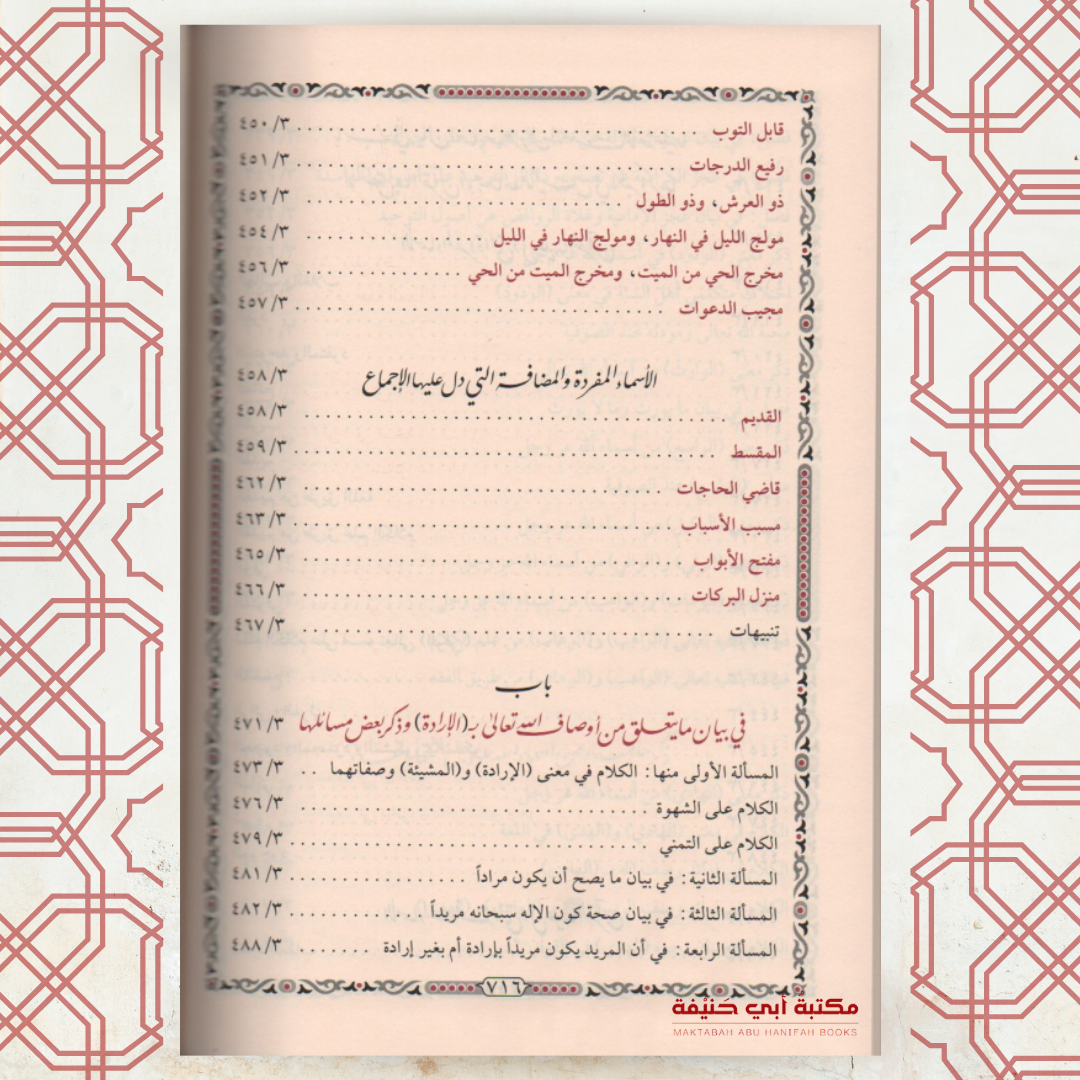 قابل التوب ........ ٣/ ٤٥٠
رفيع الدرجات ........ ٣/ ٤٥١
ذو العرش، وذو الطول ........ ٣/ ٤٥٢
مولج الليل في النهار، ومولج النهار في الليل ........ ٣/ ٤٥٤
مخرج الحي من الميت، ومخرج الميت من الحي ........ ٣/ ٤٥٦
مجيب الدعوات ........ ٣/ ٤٥٧
الأسماء المفردة والمضافة التي دل عليها الإجماع ٣/ ٤٥٨
القديم ........ ٣/ ٤٥٨
المقسط ........ ٣/ ٤٥٩
قاضي الحاجات ........ ٣/ ٤٦٢
مسبب الأسباب ........ ٣/ ٤٦٣
مفتح الأبواب ........ ٣/ ٤٦٥
منزل البركات ........ ٣/ ٤٦٦
تنبيهات ........ ٣/ ٤٦٧
باب
في بيان ما يتعلق من أوصاف الله تعالى بـ(الإرادة) وذكر بعض مسائلها ٣/ ٤٧١
المسألة الأولى منها: الكلام في معنى (الإرادة) و(المشيئة) وصفاتهما .. ٣/ ٤٧٣
الكلام على الشهوة ........ ٣/ ٤٧٦
الكلام على التمني ........ ٣/ ٤٧٩
المسألة الثانية: في بيان ما يصح أن يكون مراداً ........ ٣/ ٤٨١
المسألة الثالثة: في بيان صحة كون الإله سبحانه مريداً ........ ٣/ ٤٨٢
المسألة الرابعة: في أن المريد يكون مريداً بإرادة أم بغير إرادة ........ ٣/ ٤٨٨
٧١٦
مكتبة أبي حَنيْفة
MAKTABAH ABU HANIFAH BOOKS